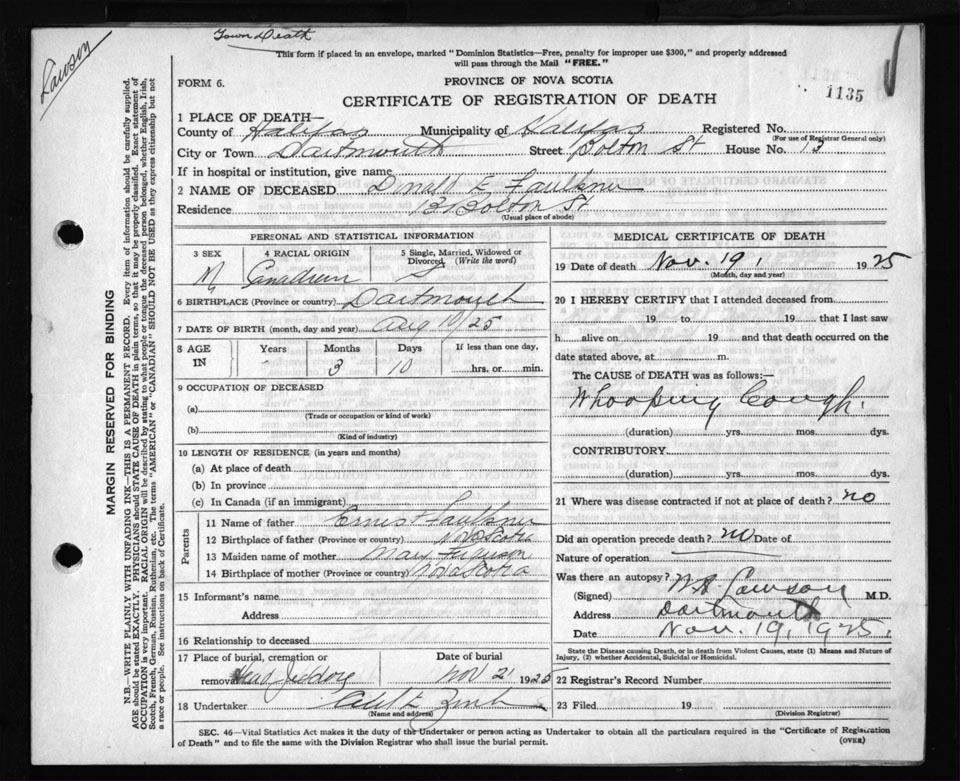 Town Death
Lawson
This form if placed in an envelope, marked "Dominion Statistics—Free, penalty for improper use $300," and properly addressed
will pass through the Mail "FREE."
FORM 6.
PROVINCE OF NOVA SCOTIA
1135
CERTIFICATE OF REGISTRATION OF DEATH
1 PLACE OF DEATH—
County of Halifax Municipality of Halifax Registered No.
(For use of Registrar General only)
City or Town Dartmouth Street Bolton St House No. 13
If in hospital or institution, give name
2 NAME OF DECEASED Donald E Faulkner
Residence 13 Bolton St
(Usual place of abode)
PERSONAL AND STATISTICAL INFORMATION
3 SEX 4 RACIAL ORIGIN 5 Single, Married, Widowed or
Divorced (Write the word)
M Canadian S
6 BIRTHPLACE (Province or country) Dartmouth
7 DATE OF BIRTH (month, day and year) Aug 10/25
8 AGE IN Years Months Days If less than one day,
3 10 hrs. or min.
9 OCCUPATION OF DECEASED
(a)
(Trade or occupation or kind of work)
(b)
(Kind of industry)
10 LENGTH OF RESIDENCE (in years and months)
(a) At place of death
(b) In province
(c) In Canada (if an immigrant)
Parents
11 Name of father Ernest Faulkner
12 Birthplace of father (Province or country) Nova Scotia
13 Maiden name of mother Mary Ferguson
14 Birthplace of mother (Province or country) Nova Scotia
15 Informant's name
Address
16 Relationship to deceased
17 Place of burial, cremation or Date of burial
removal Head Jeddore Nov 21 1925
18 Undertaker
(Name and address)
MEDICAL CERTIFICATE OF DEATH
19 Date of death Nov. 19, 1925
(Month, day and year)
20 I HEREBY CERTIFY that I attended deceased from
19 to 19 that I last saw
h alive on 19 and that death occurred on the
date stated above, at m.
The CAUSE of DEATH was as follows:—
Whooping Cough.
(duration) yrs. mos. dys.
CONTRIBUTORY
(duration) yrs. mos. dys.
21 Where was disease contracted if not at place of death? no
Did an operation precede death? no Date of
Nature of operation
Was there an autopsy?
(Signed) W.A. Lawson M.D.
Address Dartmouth
Date Nov. 19, 1925.
State the Disease causing Death, or in death from Violent Causes, state (1) Means and Nature of
Injury, (2) whether Accidental, Suicidal or Homicidal.
22 Registrar's Record Number
23 Filed 19
(Division Registrar)
SEC. 46—Vital Statistics Act makes it the duty of the Undertaker or person acting as Undertaker to obtain all the particulars required in the "Certificate of Registration
of Death" and to file the same with the Division Registrar who shall issue the burial permit.
(OVER)
MARGIN RESERVED FOR BINDING
N.B.—WRITE PLAINLY WITH UNFADING INK—THIS IS A PERMANENT RECORD. Every item of information should be carefully supplied.
AGE should be stated EXACTLY. PHYSICIANS should STATE CAUSE OF DEATH in plain terms, so that it may be properly classified. Exact statement of
OCCUPATION is very important. RACIAL ORIGIN will be described by stating to what people or tongue the deceased person belonged, whether English, Irish,
Scotch, French, German, Russian, Ruthenian, etc. The terms "AMERICAN" or "CANADIAN" SHOULD NOT BE USED as they express citizenship but not
a race or people. See instructions on back of Certificate.